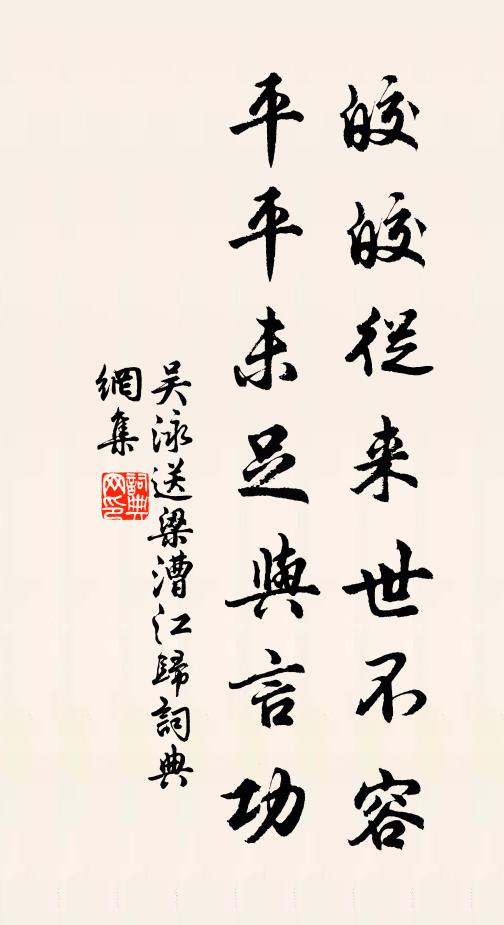 皎皎從来世不容
平平未足與言功
吴泳送梁漕江歸詞典
網集
詞典
网印